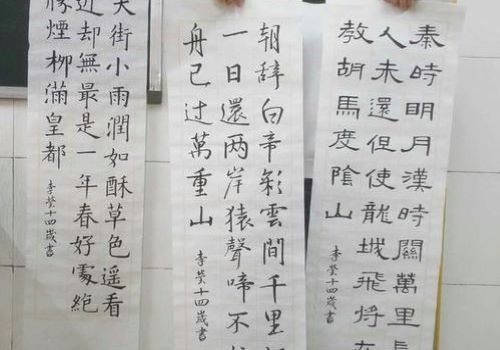 秦時明月漢時關萬里長
人未還但使龍城飛將在
教胡馬度隂山
李 十四歲書
朝辭白帝彩雲間千里
一日還两岸猿聲啼不住
舟已过萬重山
李 十四歲書
天街小雨潤如酥草色遥看
近却無最是一年春好處絕
勝煙柳滿皇都
李 十四歲書